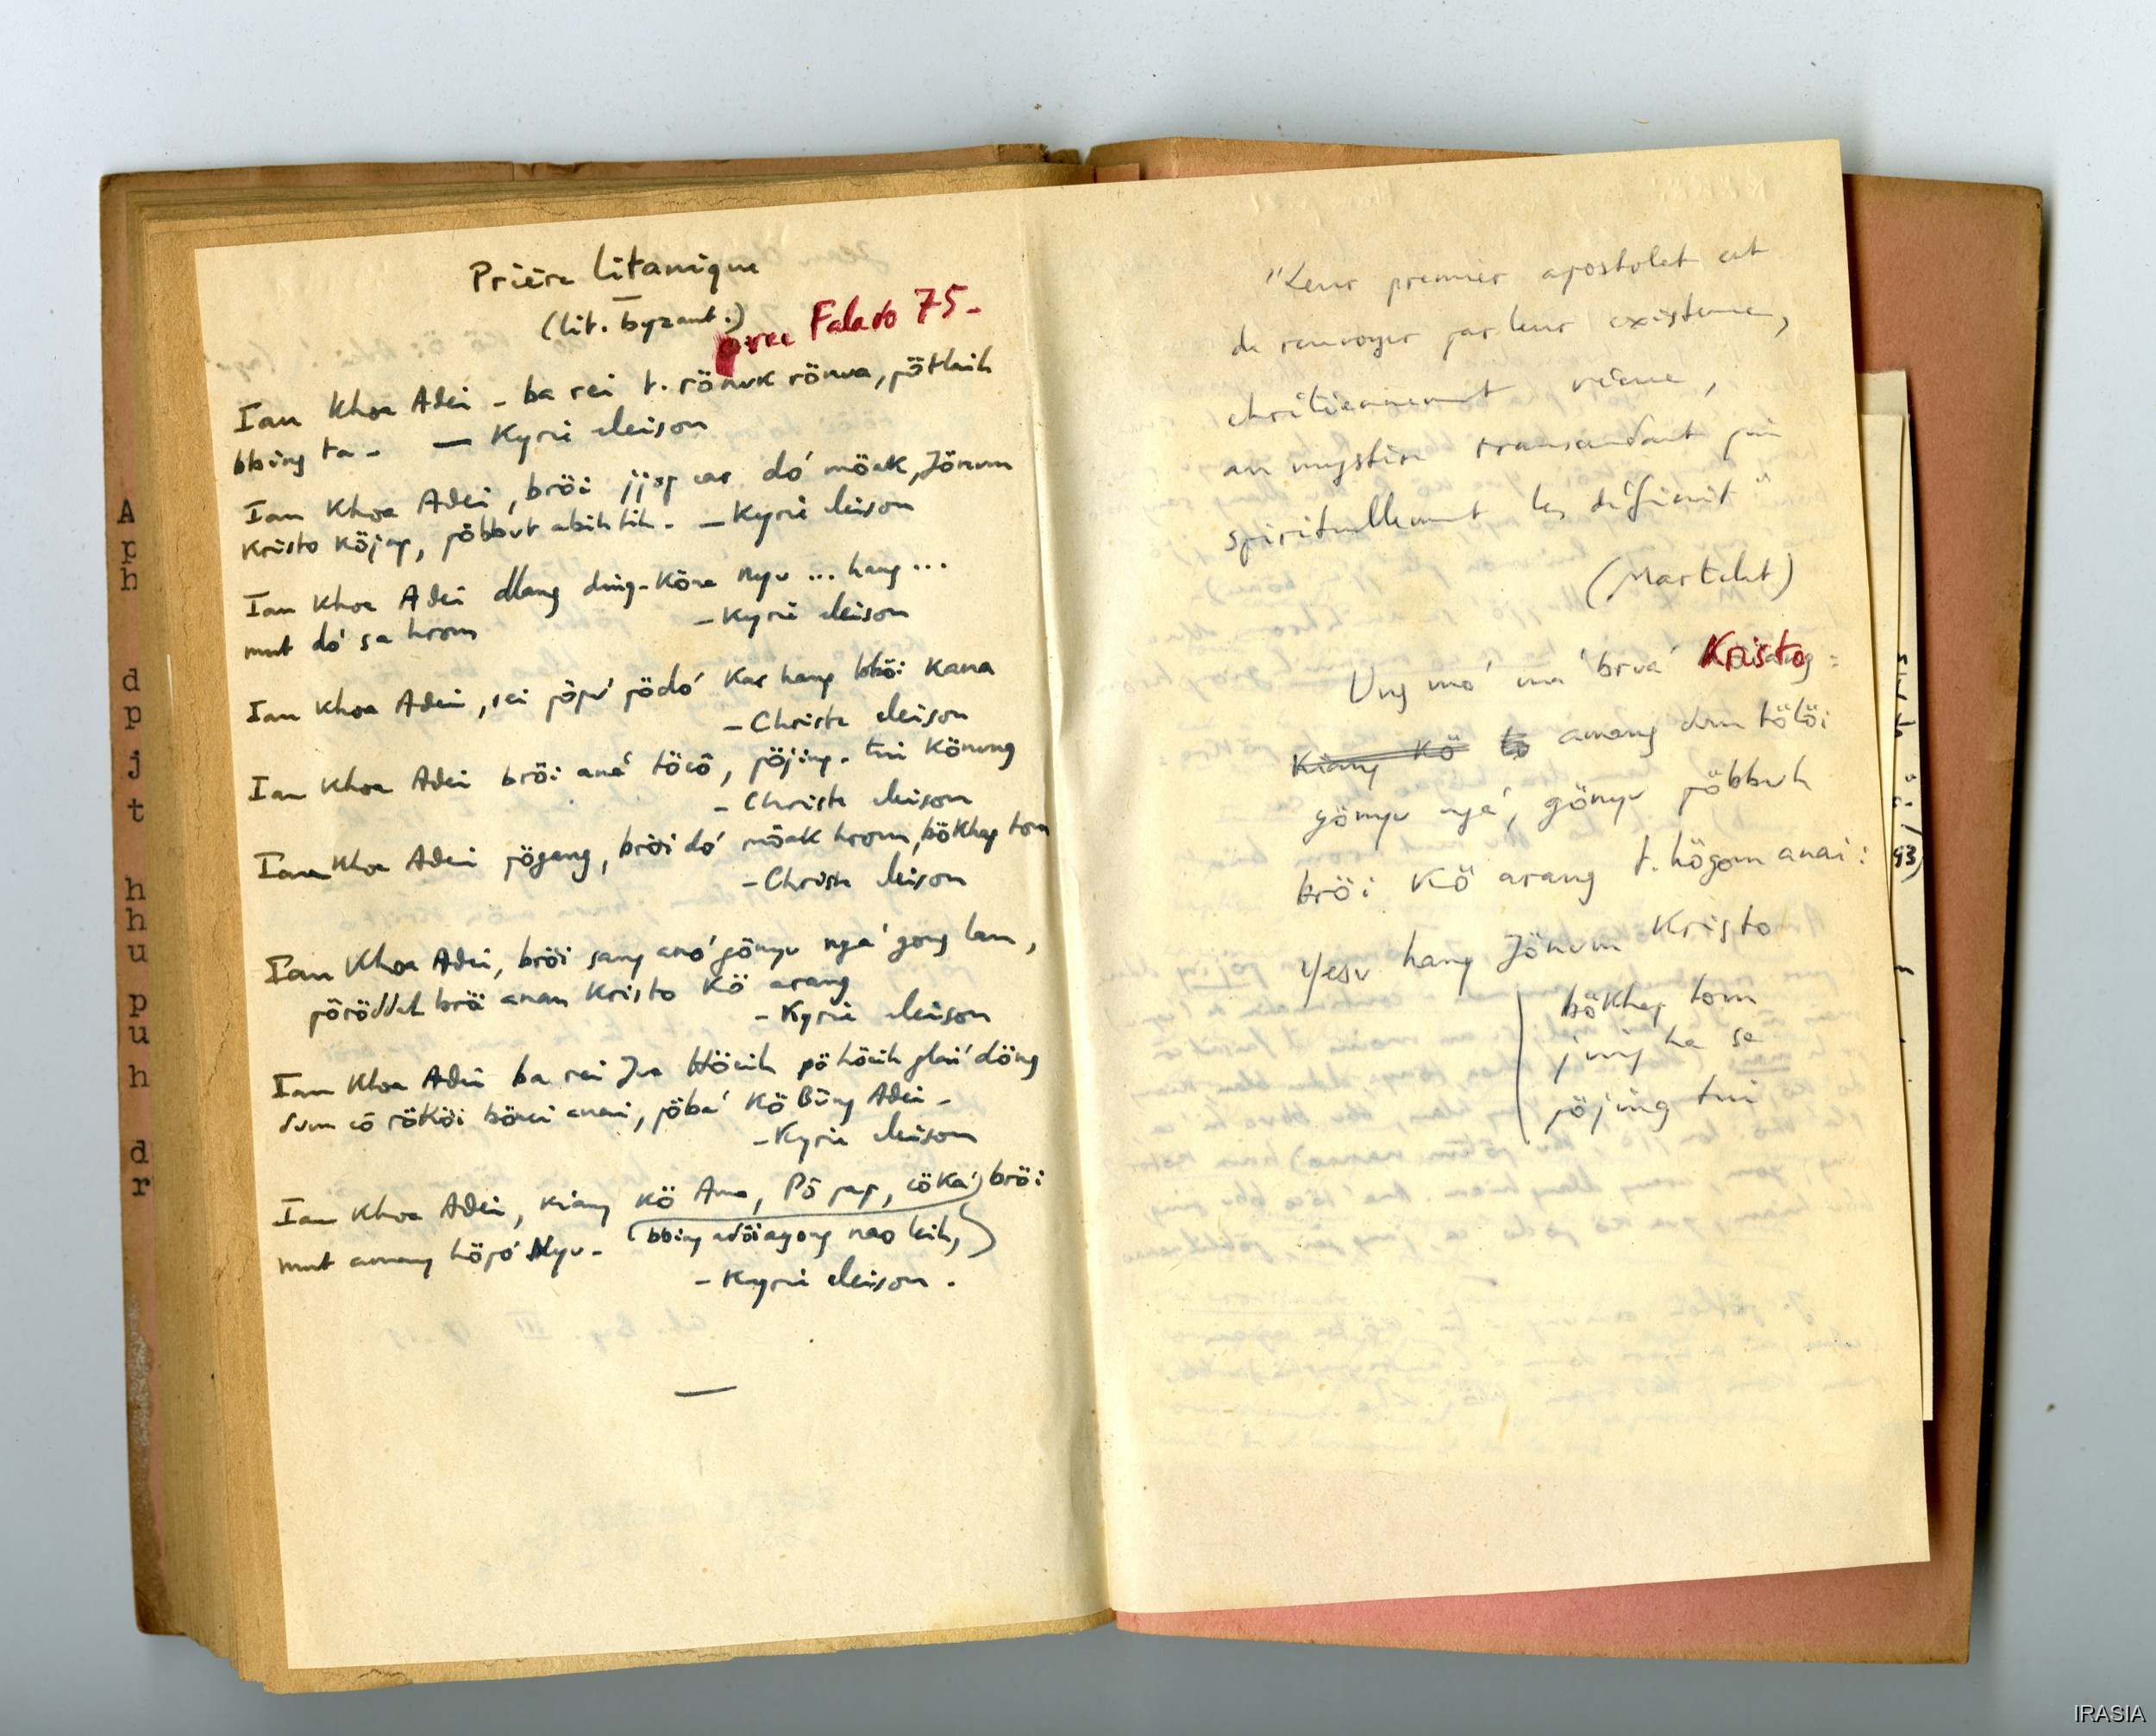 Prière litanique
(lit. byzant.)
avec Falado 75-
Iau Khoa Adei - ba rei t. rönuk rönua, pötlaih
bbing ta - — Kyrie eleison
Iau Khoa Adei, bröi jjap car dó möak, Jönum
Kristo köjap, pöbbut abih tih. — Kyrie eleison
Iau Khoa Adei dlang ding-köna Nyu ... hang ...
mut dó sa hrom — Kyrie eleison
Iau Khoa Adei, rei pöpú pödó Kar hang bböi Kana
— Christe eleison
Iau Khoa Adei bröi aná töcô, pöjing. tui könung
— Christe eleison
Iau Khoa Adei pögang, bröi dó möak hrom, bökhap tom
— Christe eleison
Iau Khoa Adei, bröi sang anó gönyu ngá gong lan,
pöröddah bröi anan Kristo kö arang
— Kyrie eleison
Iau Khoa Adei ba rei Jua Höcih pö höcih glai döng
sum cô rököi bönai anai, pöbá kö Bông Adei -
— Kyrie eleison
Iau Khoa Adei, kiang kö Ama, Pö pap, cöká bröi
mut amang höpó Nyu - (bbing adöi ayong nao laih,)
— Kyrie eleison.
"Leur premier apostolat est
de renvoyer par leur existence,
chrétiennement vécue,
au mystère transcendant qui
spirituellement les définit"
(Martelet)
Ung mó ma bruá Kristo =
Kiang kö amang dum tölöi
gönyu ngá, gönyu pöbbuh
bröi kö arang t. högom anai:
Yesu hang Jönum Kristo
bökhap tom
jing ha sa
pöjing tui
A
p
h
d
p
j
t
h
h
u
p
u
h
d
r
93)
IRASIA